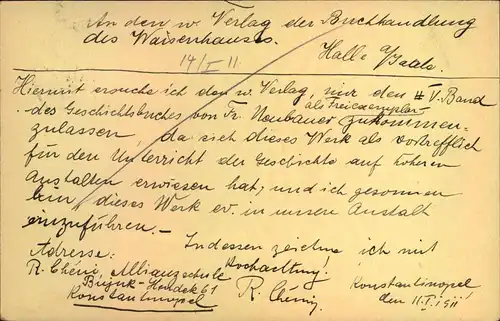 An den w. Verlag der Buchhandlung
des Waisenhauses.
Halle a/Saale.
14/I 11
Hiermit ersuche ich den w. Verlag, mir den V. Band
als Freiexemplar
des Geschichtsbuches von Fr. Neubauer zukommen-
zulassen, da sich dieses Werk als vortrefflich
für den Unterricht der Geschichte auf höheren
Anstalten erwiesen hat, und ich gesonnen
bin, dieses Werk ev. in unsere Anstalt
einzuführen.-
Indessen zeichne ich mit
Hochachtung!
Adresse:
R. Chéni, Allianzschule
Buyuk-Hendek 61
Konstantinopel
R. Chéni.
Konstantinopel
den 11.I.1911